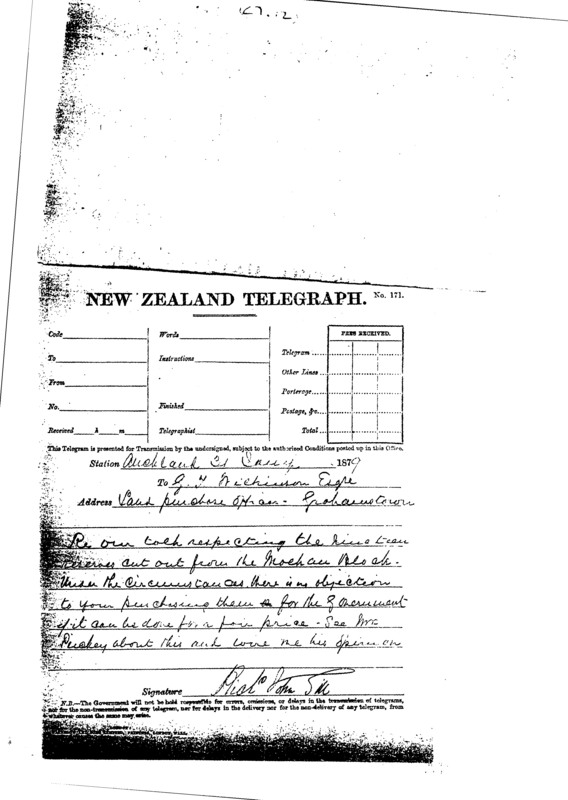 NEW ZEALAND TELEGRAPH. No. 171.
FEES RECEIVED.
Code
Words
Telegram
To
Instructions
Other Lines
From
Porterage
No.
Finished
Postage, &c.
Received h m
Telegraphist
Total
This Telegram is presented for Transmission by the undersigned, subject to the authorised Conditions posted up in this Office.
Station Auckland 31 1879
To G. T. Wilkinson Esqre
Address Land purchase Officer - Grahamstown
Re our talk respecting the nineteen
reserves cut out from the Moehau Block.
Under the Circumstances there is no objection
to your purchasing them for the Government
if it can be done for a fair price - See Mr
Puckey about this and wire me his opinion
Signature
N.B.—The Government will not be held responsible for errors, omissions, or delays in the transmission of telegrams,
nor for the non-transmission of any telegram, nor for delays in the delivery nor for the non-delivery of any telegram, from
whatever causes the same may arise.